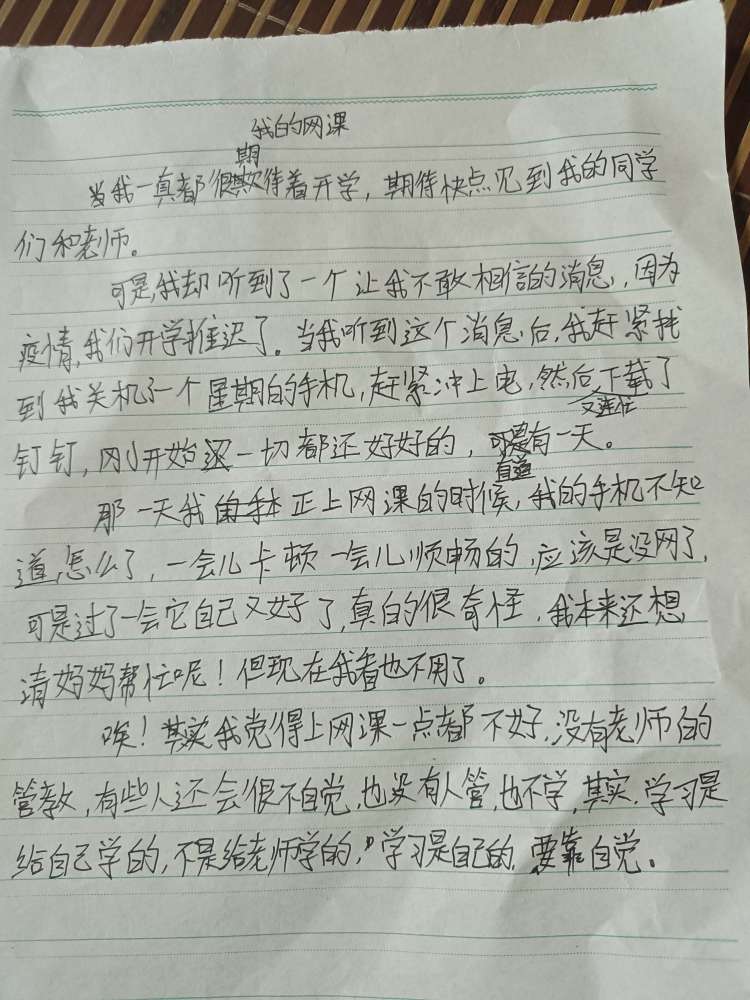 我的网课
期
当我一真都很欺待着开学，期待快点见到我的同学
们和老师。
可是，我却听到了一个让我不敢相信的消息，因为
疫情，我们开学推迟了。当我听到这个消息后，我赶紧找
到我关机了一个星期的手机，赶紧冲上电，然后下载了
钉钉，刚开始还一切都还好好的，可是有一天。
那一天我正上网课的时候，我的手机不知
道，怎么了，一会儿卡顿一会儿顺畅的，应该是没网了，
可是过了一会它自己又好了，真的很奇怪，我本来还想，
请妈妈帮忙呢！但现在我看也不用了。
唉！其实我觉得上网课一点都不好，没有老师的
管教，有些人还会很不自觉，也没有人管，也不学，其实，学习是
给自己学的，不是给老师学的，学习是自己的，要靠自觉。